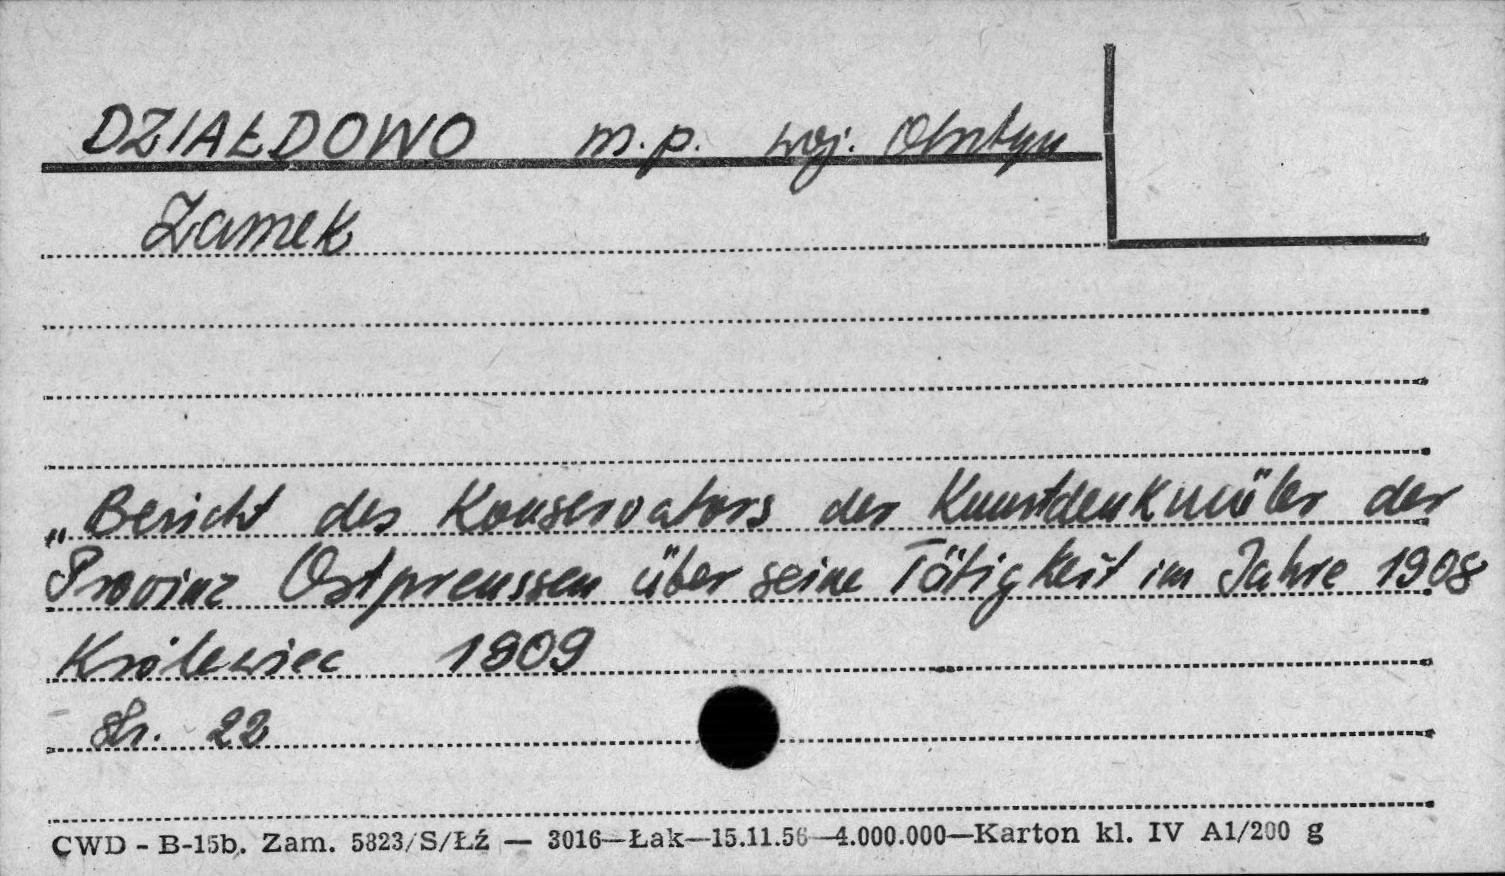 DZIAŁDOWO m.p. woj. Olsztyn
Zamek
„Bericht des Konservators der Kunstdenkmäler der
Provinz Ostpreussen über seine Tätigkeit im Jahre 1908
Królewiec 1909
Str. 22
CWD - B-15b. Zam. 5823/S/Łź — 3016—Łak—15.11.56—4.000.000—Karton kl. IV A1/200 g